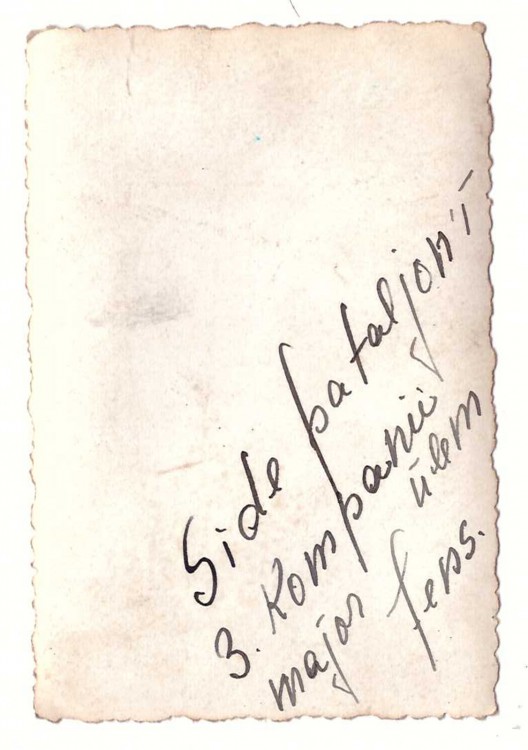 Side pataljon'i
3. Kompanii
ülem
major Jens.